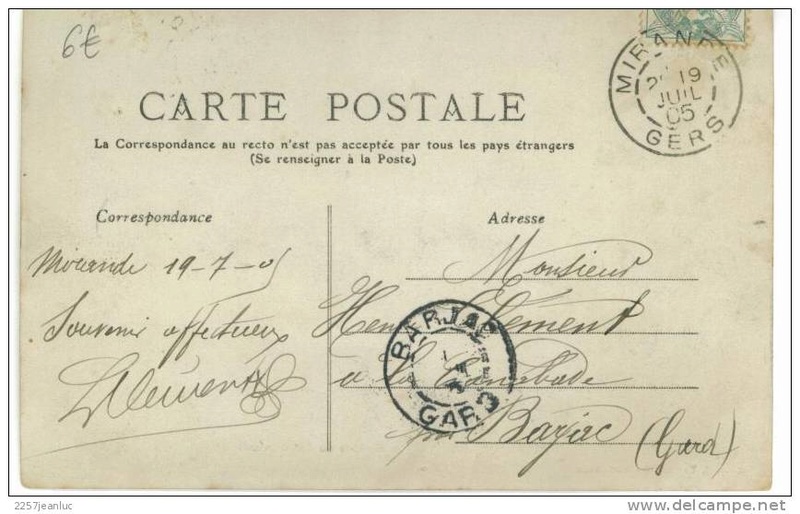 6€
MIRANDE
19
JUIL
05
GERS
CARTE POSTALE
La Correspondance au recto n'est pas acceptée par tous les pays étrangers
(Se renseigner à la Poste)
Correspondance
Mirande 19-7-05
Souvenir affectueux
LClément
Adresse
Monsieur
Henri Clément
à la
par Barjac (Gard)
BARJAC
GARD
2257jeanluc
delcampe.net